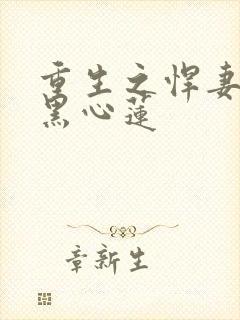 重生之悍妻
黑心蓮
章新生